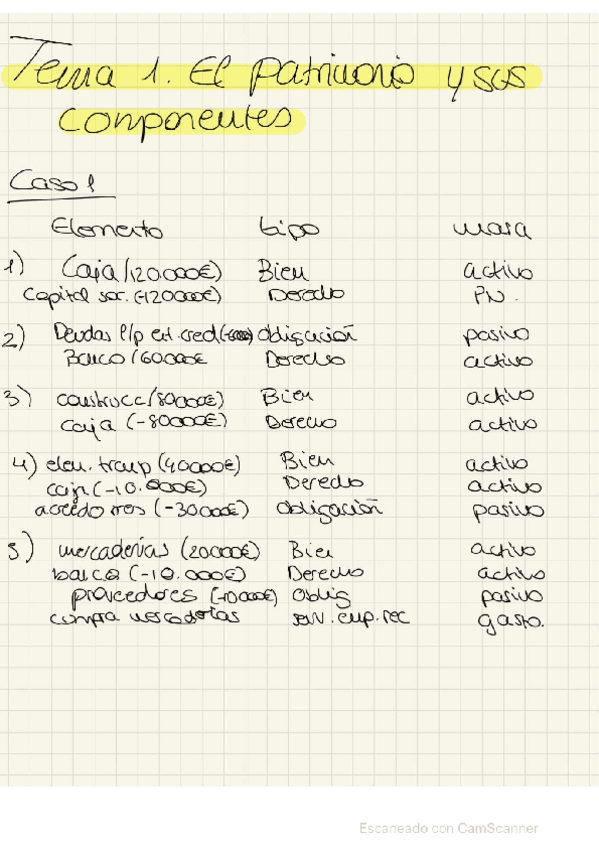 Tema 1. El patrimonio y sus
componentes
Caso 1
Elemento tipo masa
1) Caja (120.000€) Bien activo
Capital soc. (-120000€) Derecho PN.
2) Deudas l/p ent. cred Obligación pasivo
Banco (60000€ Derecho activo
3) construcc (80000€) Bien activo
caja (-80000€) Derecho activo
4) elem. transp (40000€) Bien activo
caja (-10.000€) Derecho activo
acreedores (-30000€) Obligación pasivo
5) mercaderías (20000€) Bien activo
banco (-10.000€) Derecho activo
proveedores (-10000€) Oblig pasivo
compra mercaderías serv. emp. rec gasto.
Escaneado con CamScanner